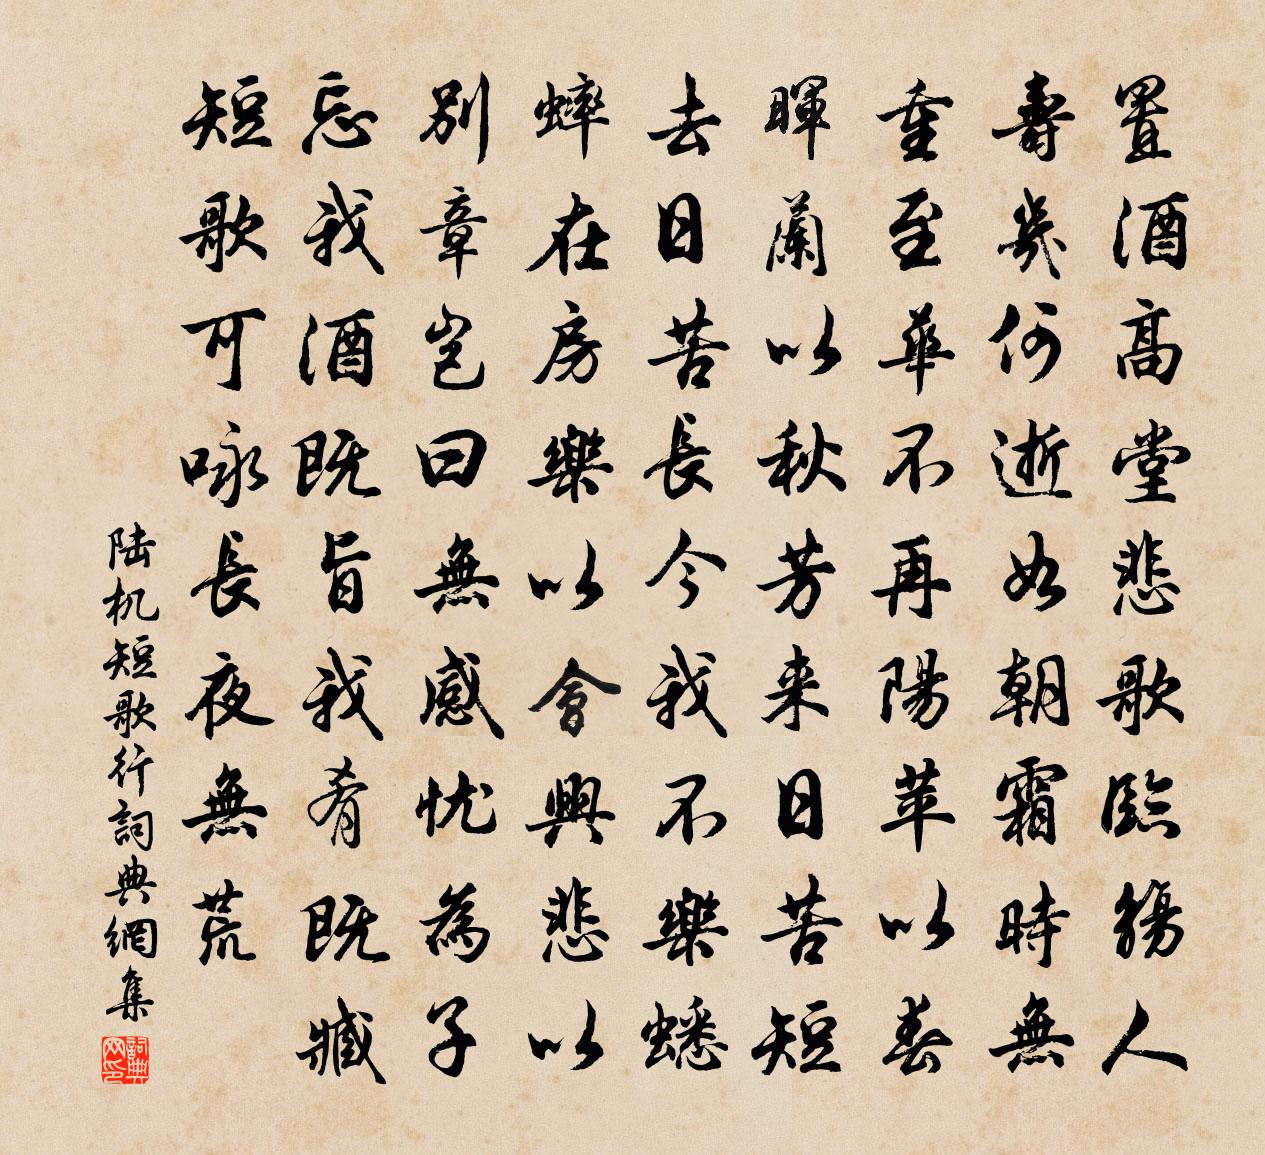 置酒高堂悲歌臨觴人
壽幾何逝如朝霜時無
重至華不再陽苹以春
暉蘭以秋芳来日苦短
去日苦長今我不樂蟋
蟀在房樂以會興悲以
別章豈曰無感忧為子
忘我酒既旨我肴既臧
短歌可咏長夜無荒
陆机短歌行詞典網集
詞典网印